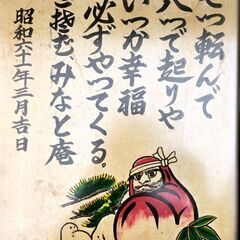 つ転んで
八つで起りや
いつか幸福
必ずやってくる。
みなと庵
昭和六十一年三月吉日